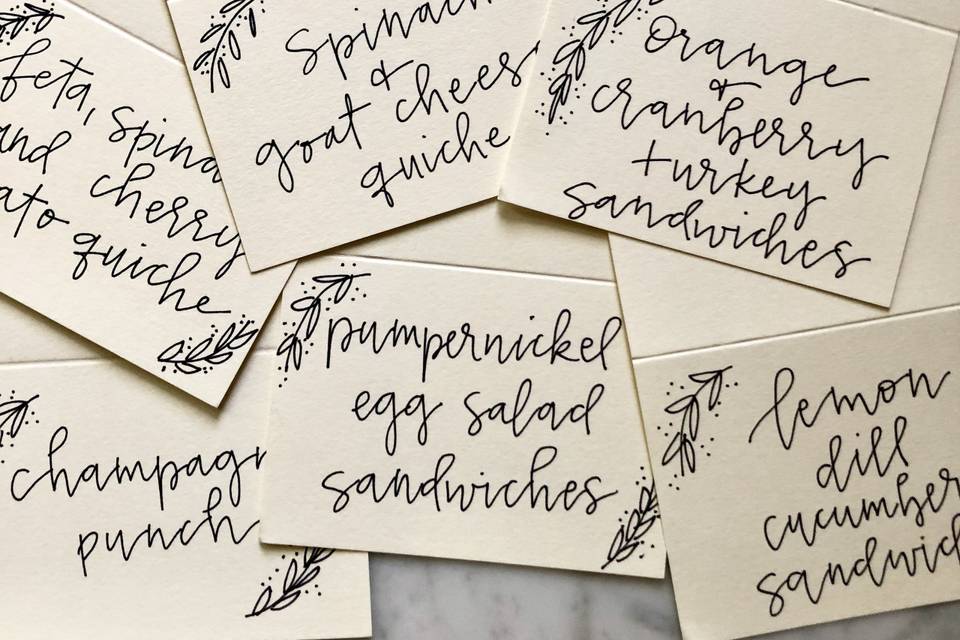 feta, spina
and cherry
ato quiche
spinach
&
goat chees
quiche
orange
&
cranberry
turkey
sandwiches
champagn
punch
pumpernickel
egg salad
sandwiches
lemon
dill
cucumber
sandwich